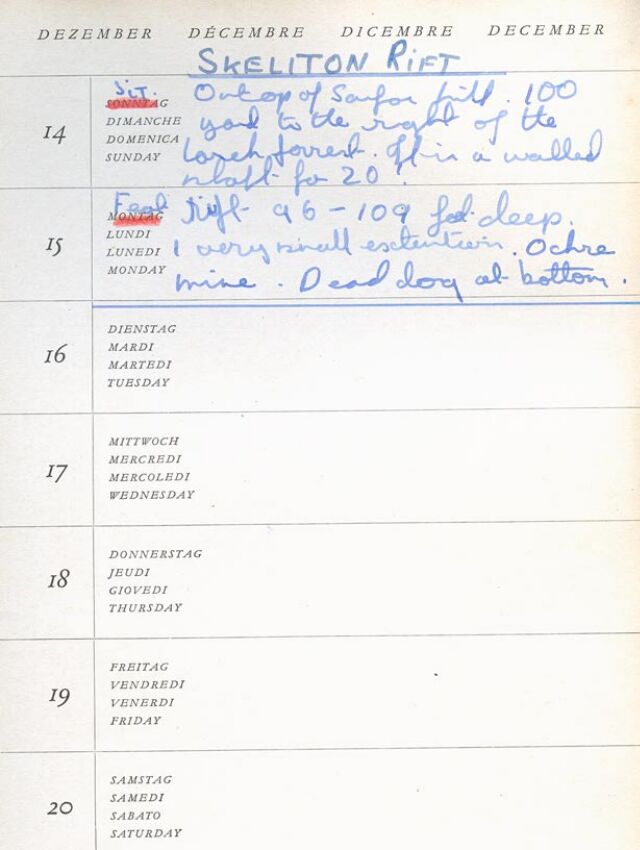 DEZEMBER DÉCEMBRE DICEMBRE DECEMBER
SKELITON RIFT
Sit. On top of Sanfor hill. 100
14 SONNTAG
DIMANCHE yard to the right of the
DOMENICA
SUNDAY Larch forrest. It is a walled
shaft for 20'
Feat Rift 96-109 feet deep.
15 MONTAG
LUNDI
LUNEDI 1 very small extention. Ochre
MONDAY
mine. Dead dog at bottom.
16 DIENSTAG
MARDI
MARTEDI
TUESDAY
17 MITTWOCH
MERCREDI
MERCOLEDI
WEDNESDAY
18 DONNERSTAG
JEUDI
GIOVEDI
THURSDAY
19 FREITAG
VENDREDI
VENERDI
FRIDAY
20 SAMSTAG
SAMEDI
SABATO
SATURDAY